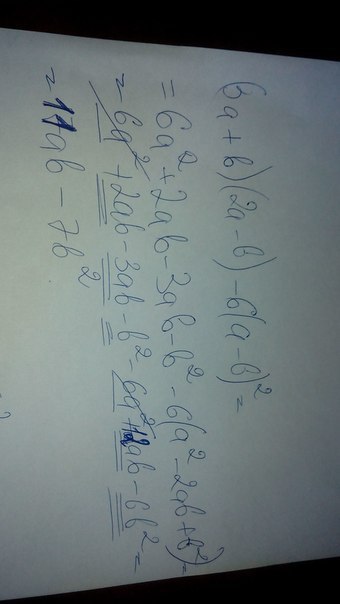 (3a+b)(2a-b)-6(a-b)²=
=6a²+2ab-3ab-b²-6(a²-2ab+b²)=
=6a²+2ab-3ab-b²-6a²+12ab-6b²=
=11ab-7b²